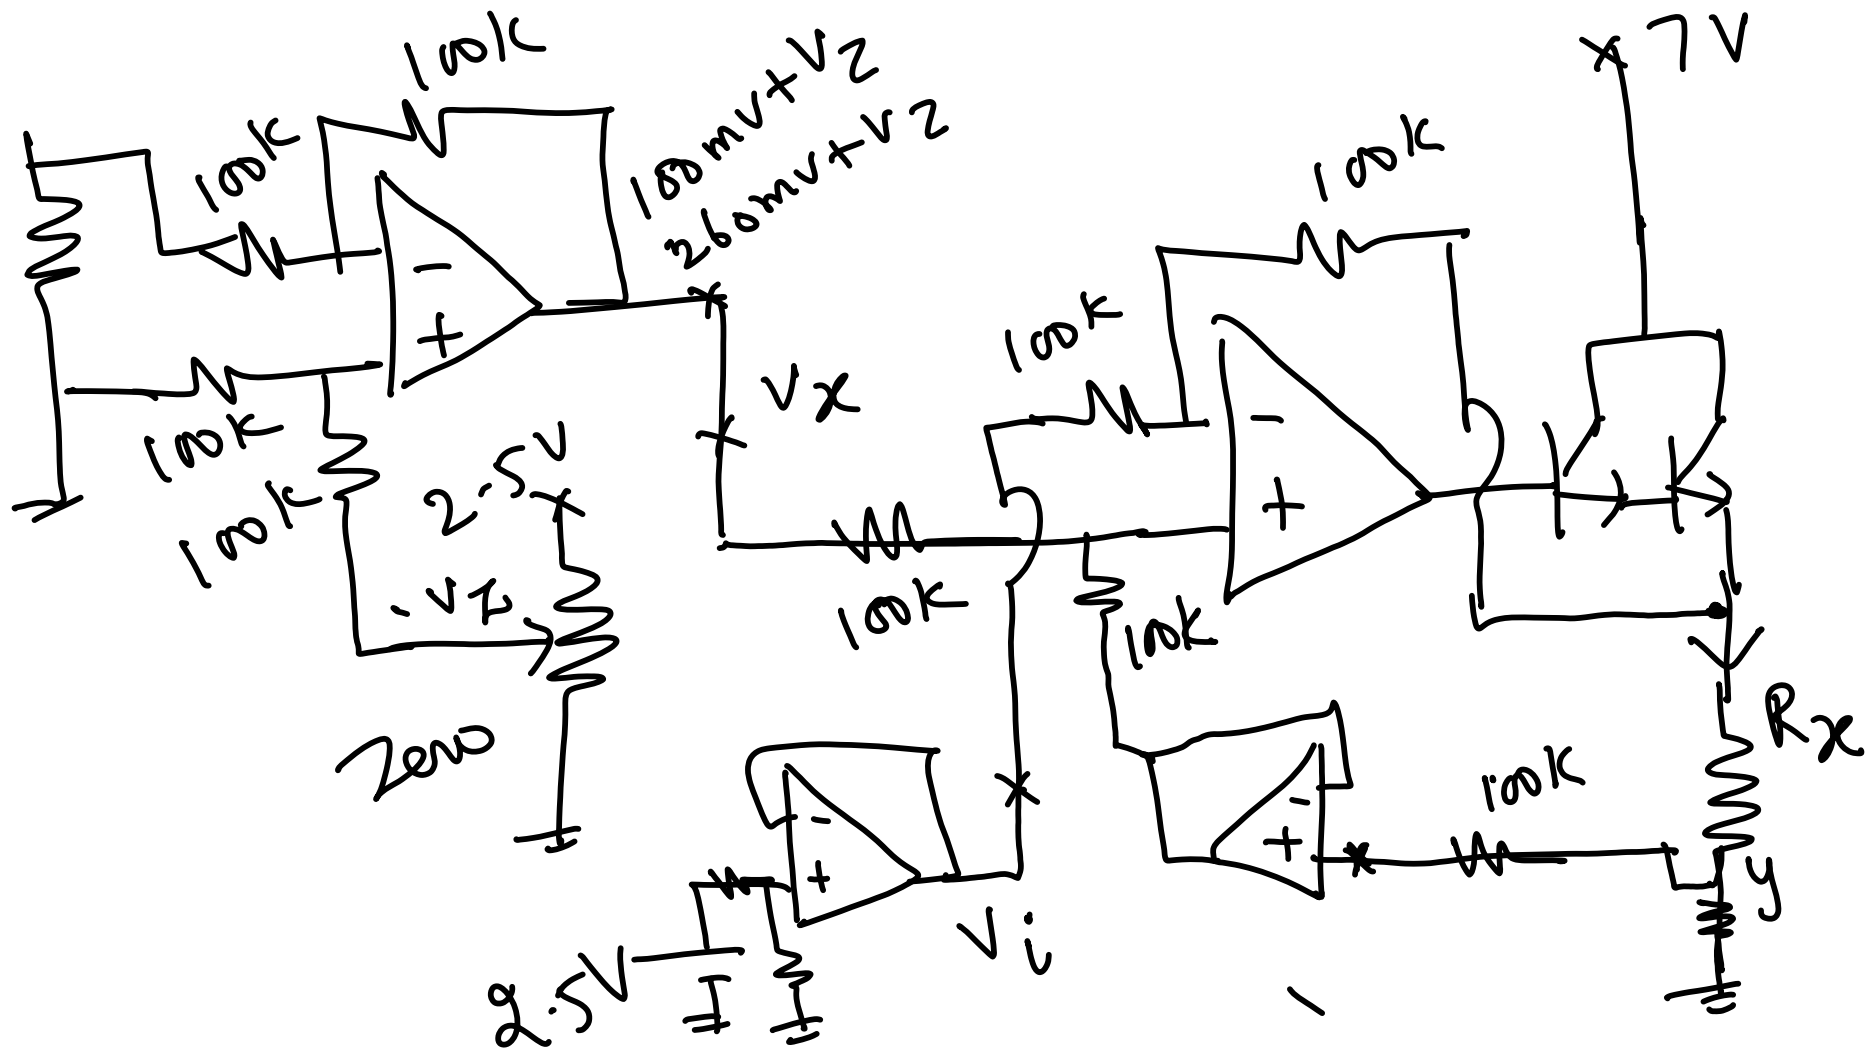 100K
100K
100mV+VZ
260mV+VZ
7V
100K
-
+
100K
Vx
100K
2.5V
100K
-
+
VZ
100K
100K
Rx
Zero
-
+
100K
-
+
y
Vi
2.5V